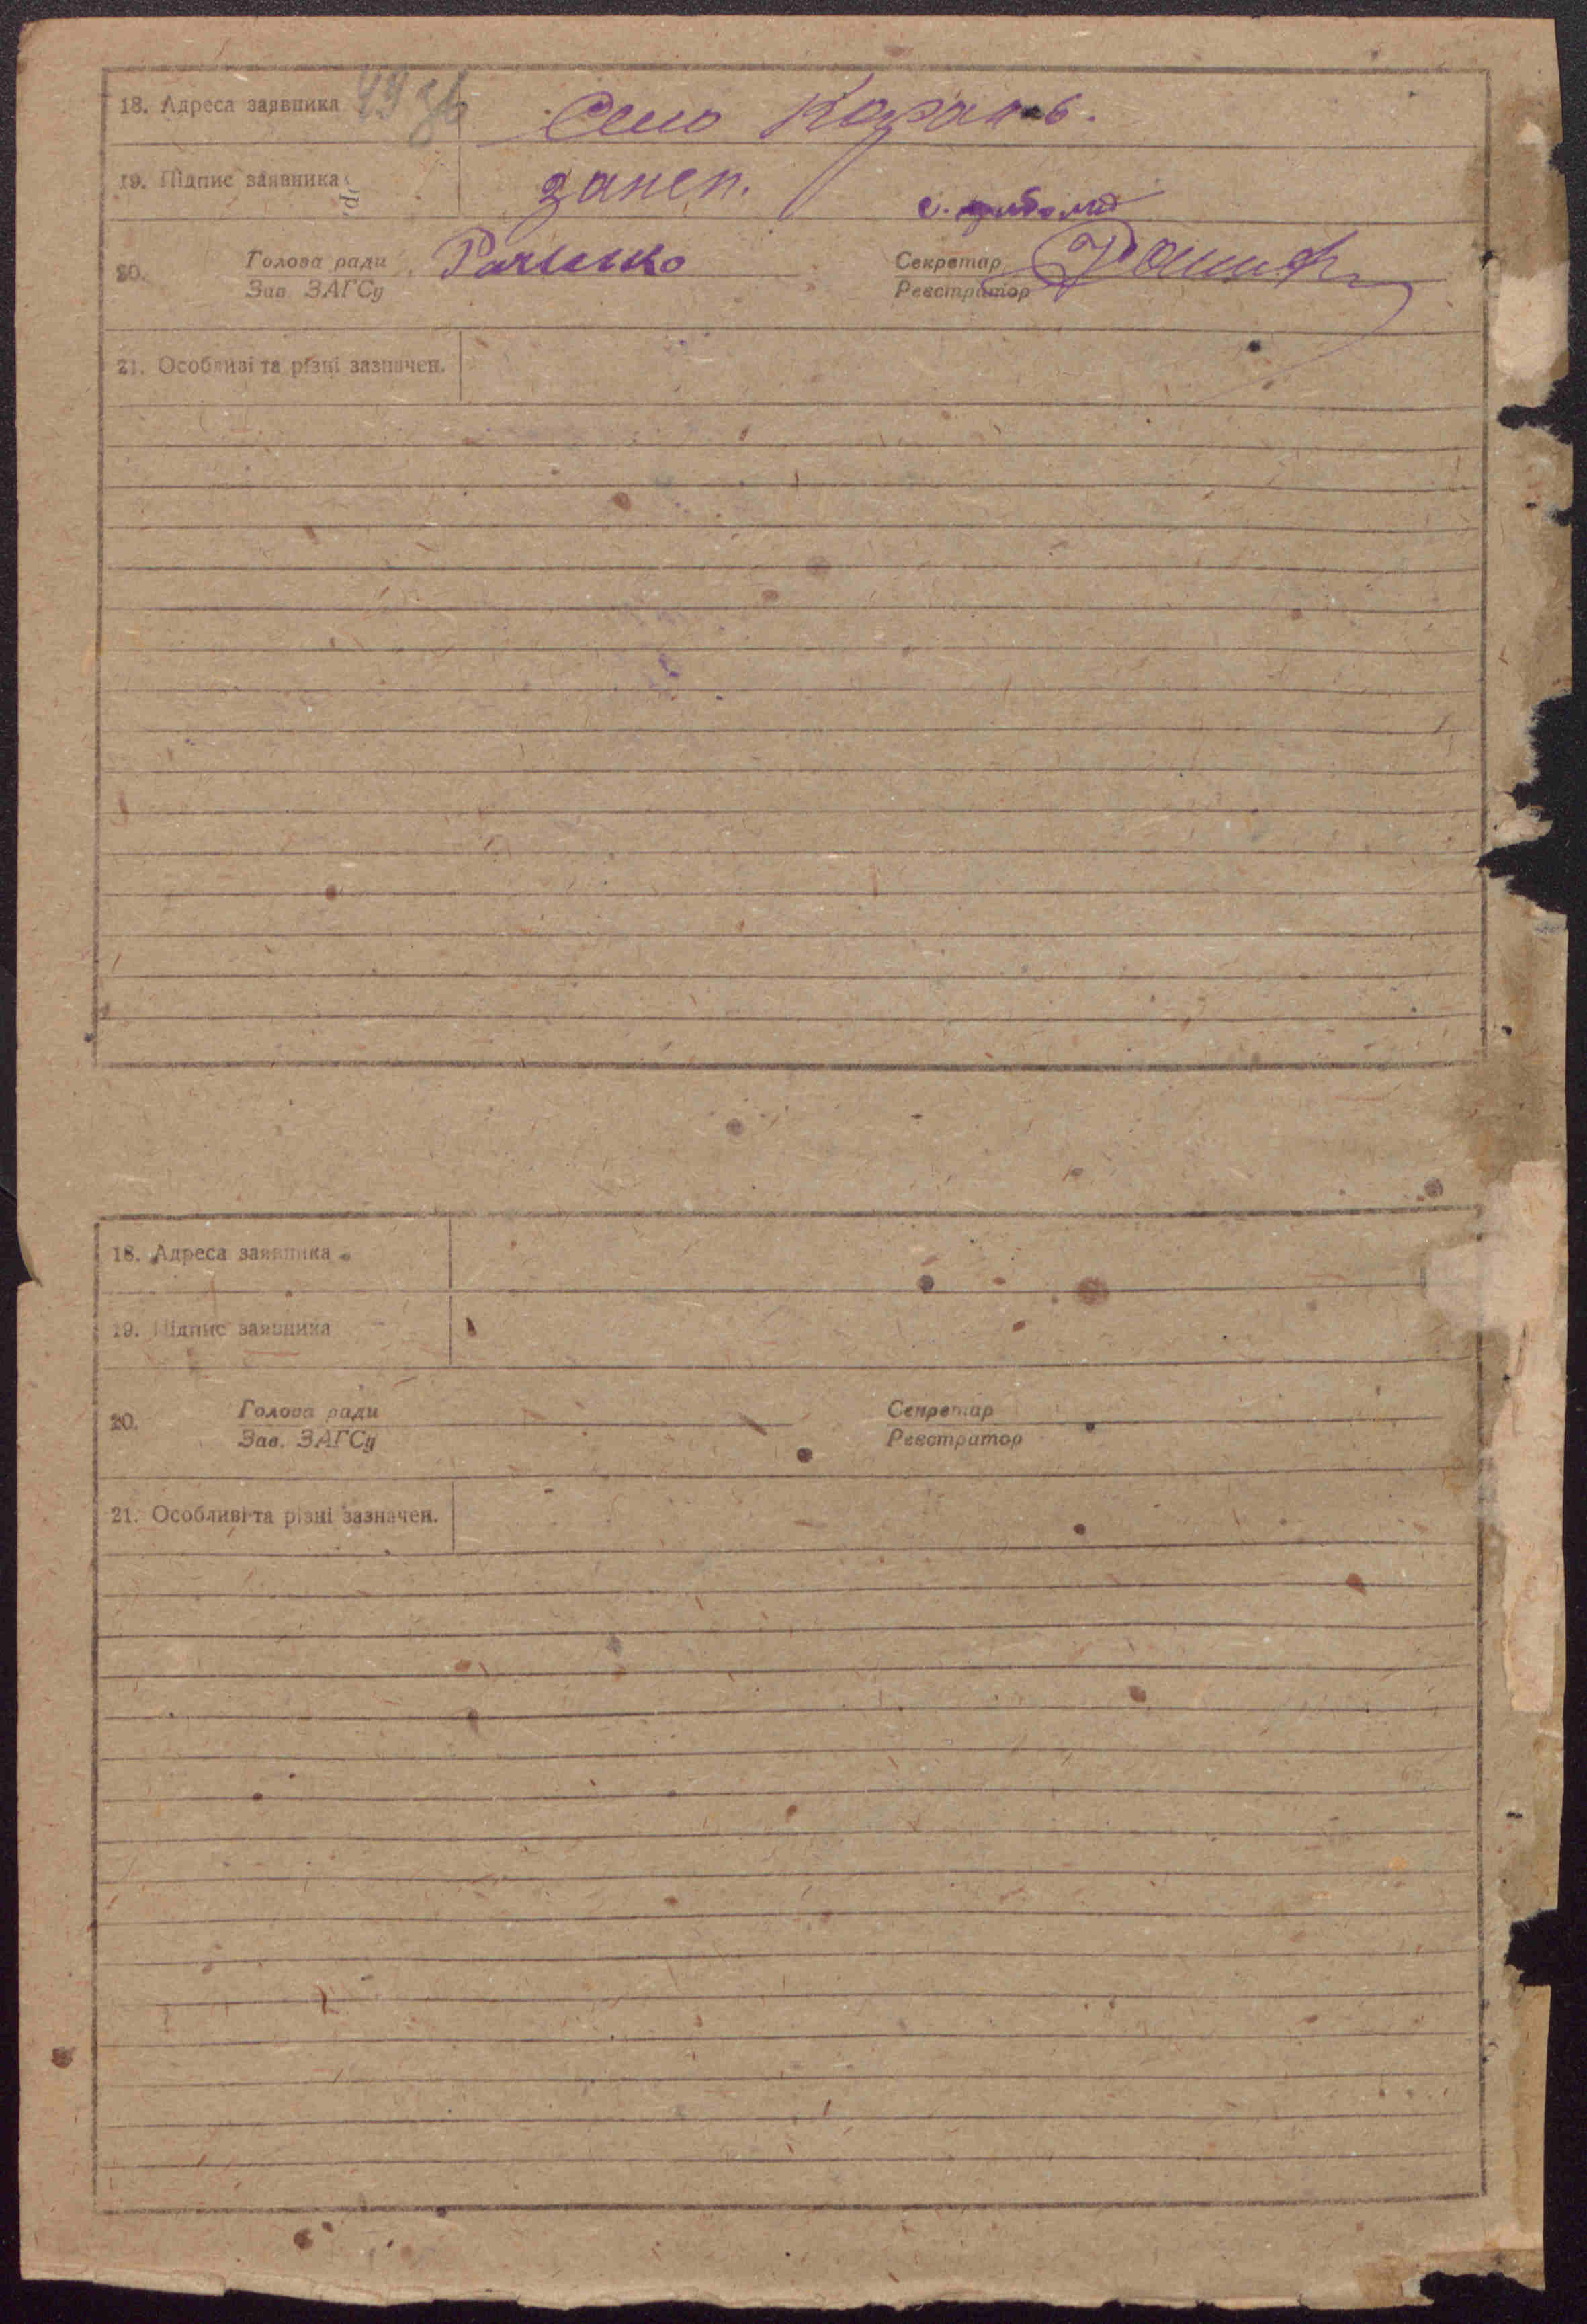 18. Адреса заявника 49 зв Село Карань.
19. Підпис заявника
20. Голова ради Секретар
Зав. ЗАГСу Реєстратор
21. Особливі та різні зазначен.
18. Адреса заявника
19. Підпис заявника
20. Голова ради Секретар
Зав. ЗАГСу Реєстратор
21. Особливі та різні зазначен.